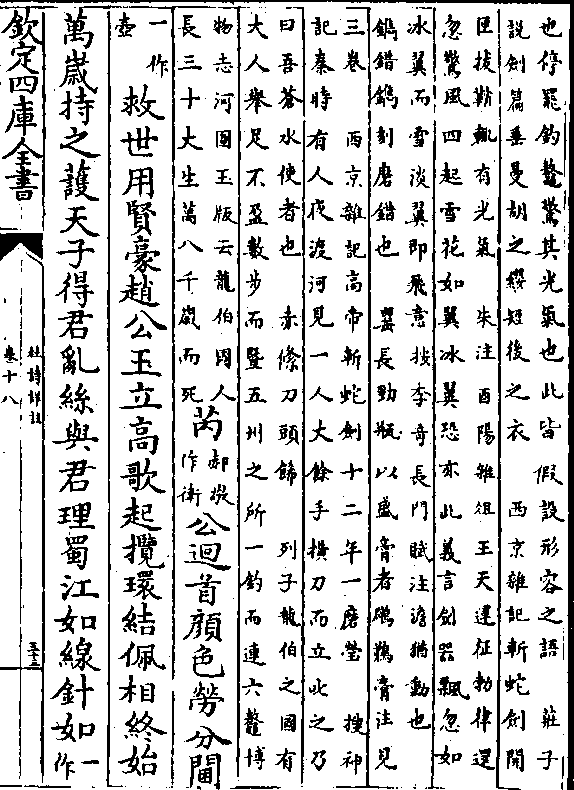 也停罷釣鼇驚其光氣也此皆假設形容之語　莊子
說劍篇垂曼胡之纓短後之衣　西京雜記斬蛇劍開
匣拔鞘輒有光氣　朱注酉陽雜俎王天運征勃律還
忽驚風四起雪花如翼冰翼恐亦此義言劍器飄忽如
冰翼而雪淡翼即飛意按李奇長門賦注澹猶動也
鐫錯鐫刻磨錯也　罌長勁瓶以盛膏者鸊鵜膏注見
三卷　西京雜記高帝斬蛇劍十二年一磨瑩　搜神
記秦時有人夜渡河見一人丈餘手橫刀而立叱之乃
曰吾蒼水使者也　赤絛刀頭飾　列子龍伯之國有
大人舉足不盈數步而暨五州之所一釣而連六鼇博
物志河圖玉版云龍伯國人
長三十丈生萬八千嵗而死
芮
郝疑
作衛
公迴首顔色勞分閫
一作
壺
救世用賢豪趙公玉立高歌起攬環結佩相終始
萬嵗持之護天子得君亂絲與君理蜀江如線針如一
作
欽定四庫全書
杜詩詳註
卷十八